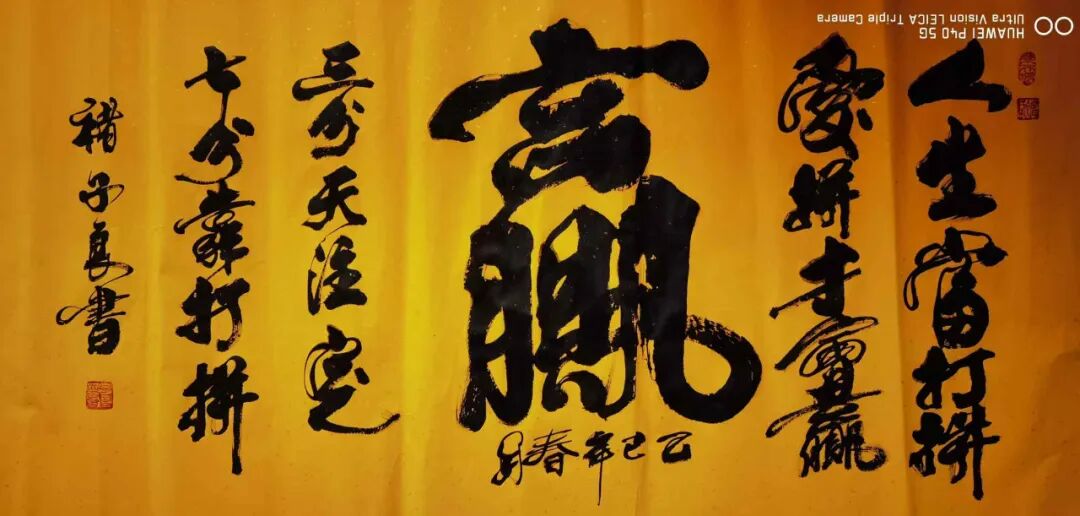 人生當打拼
愛拼才會贏
贏
乙巳年春月
三分天注定
七分靠打拼
褚子良書
HUAWEI P40 5G
Ultra Vision LEICA Triple Camera